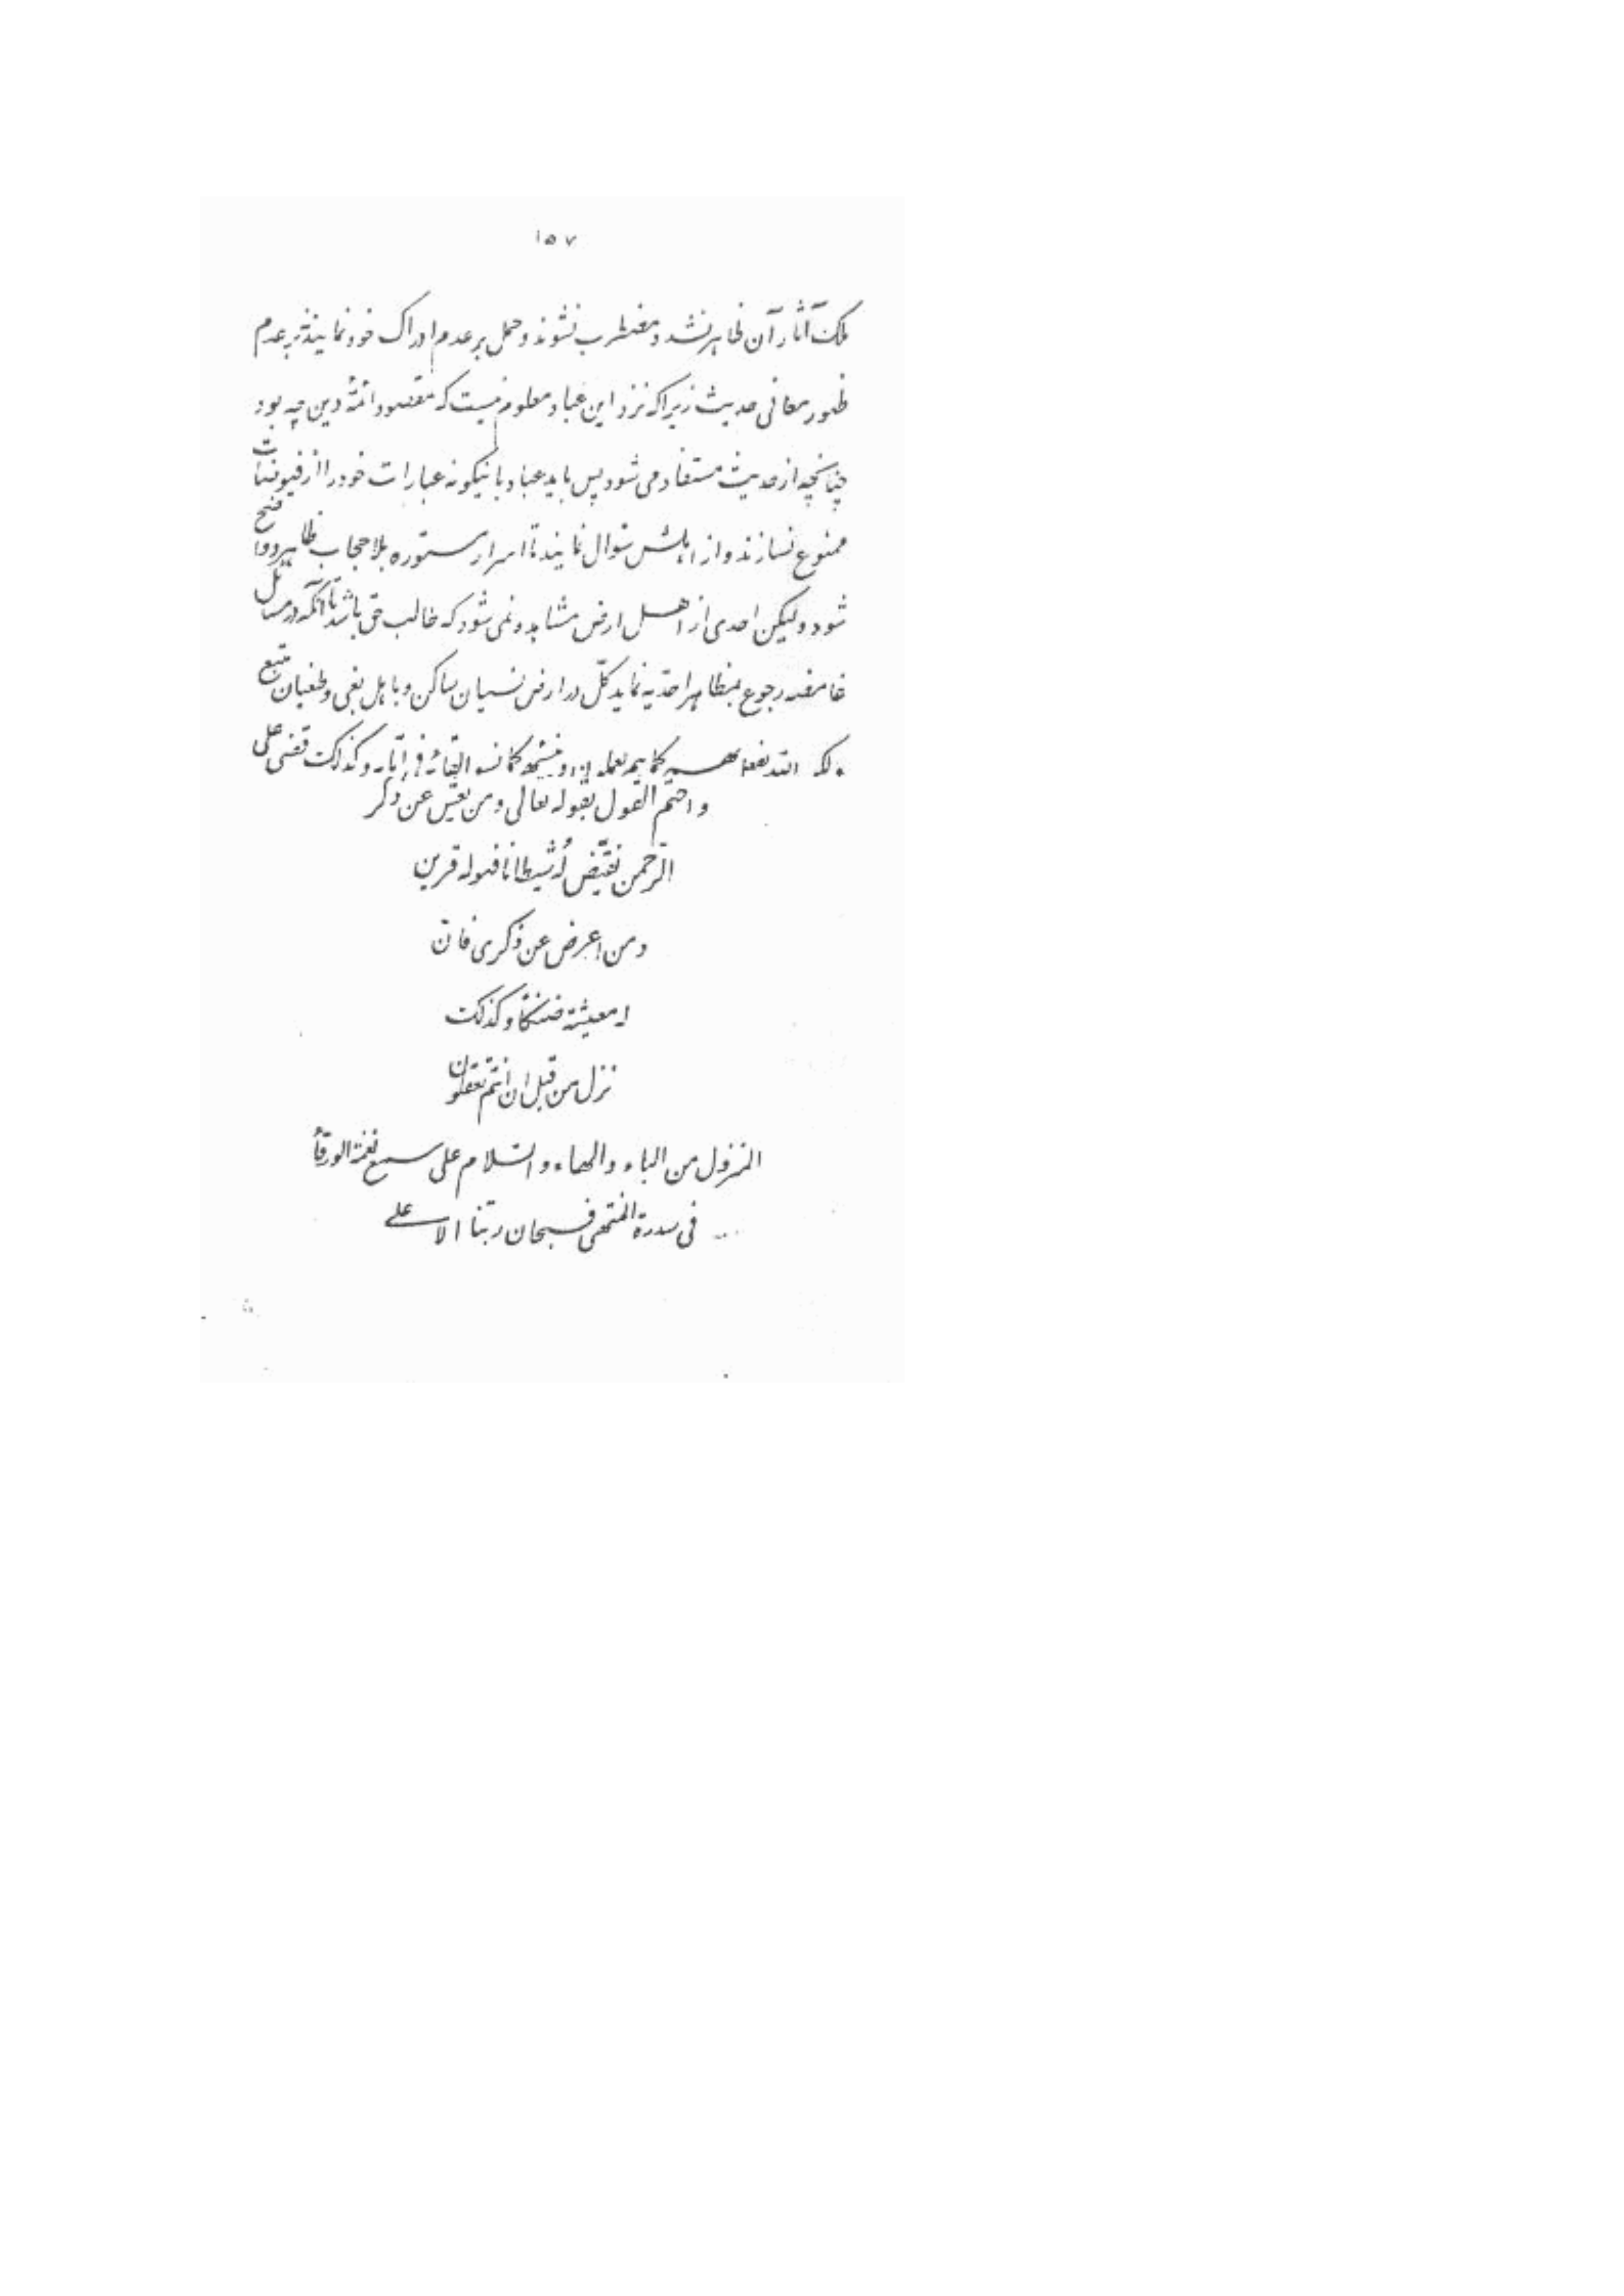 ۱۵۷
ملک آثار آن ظاهر نشد مضطرب نشوند و حمل بر عدم ادراک خود نمایند نه بر عدم
ظهور معانی حدیث زیرا که نزد این عباد معلوم نیست که مقصود ائمّه دین چه بود
چنانچه از حدیث مستفاد می شود پس باید عباد باینگونه عبارات خود را از فیوضات
ممنوع نسازند و از اهلش سؤال نمایند تا اسرار مستوره بلا حجاب ظاهر و واضح
شود ولیکن احدی از اهل ارض مشاهده نمی شود که طالب حق باشد تا آنکه در مسائل
غامضه رجوع بمظاهر احدّیه نماید کلّ در ارض نسیان ساکن و باهل بغی و طغیان متبع
ولکن الله یفعل بهم کما هم یعملون و ینسیهم کما نسوا لقائه فی ایّامه و کذلک قضی علی
و اختم القول بقوله تعالی و من یعش عن ذکر
الرّحمن نقیّض لهُ شیطانا فهو له قرین
و من اعرض عن ذکری فانّ
له معیشة ضنکاً و کذلک
نزل من قبل ان انتم تعقلون
المنزول من الباء والهاء والسّلام علی من سمع نغمة الورقاء
فی سدرة المنتهی فسبحان ربّنا الاعلی